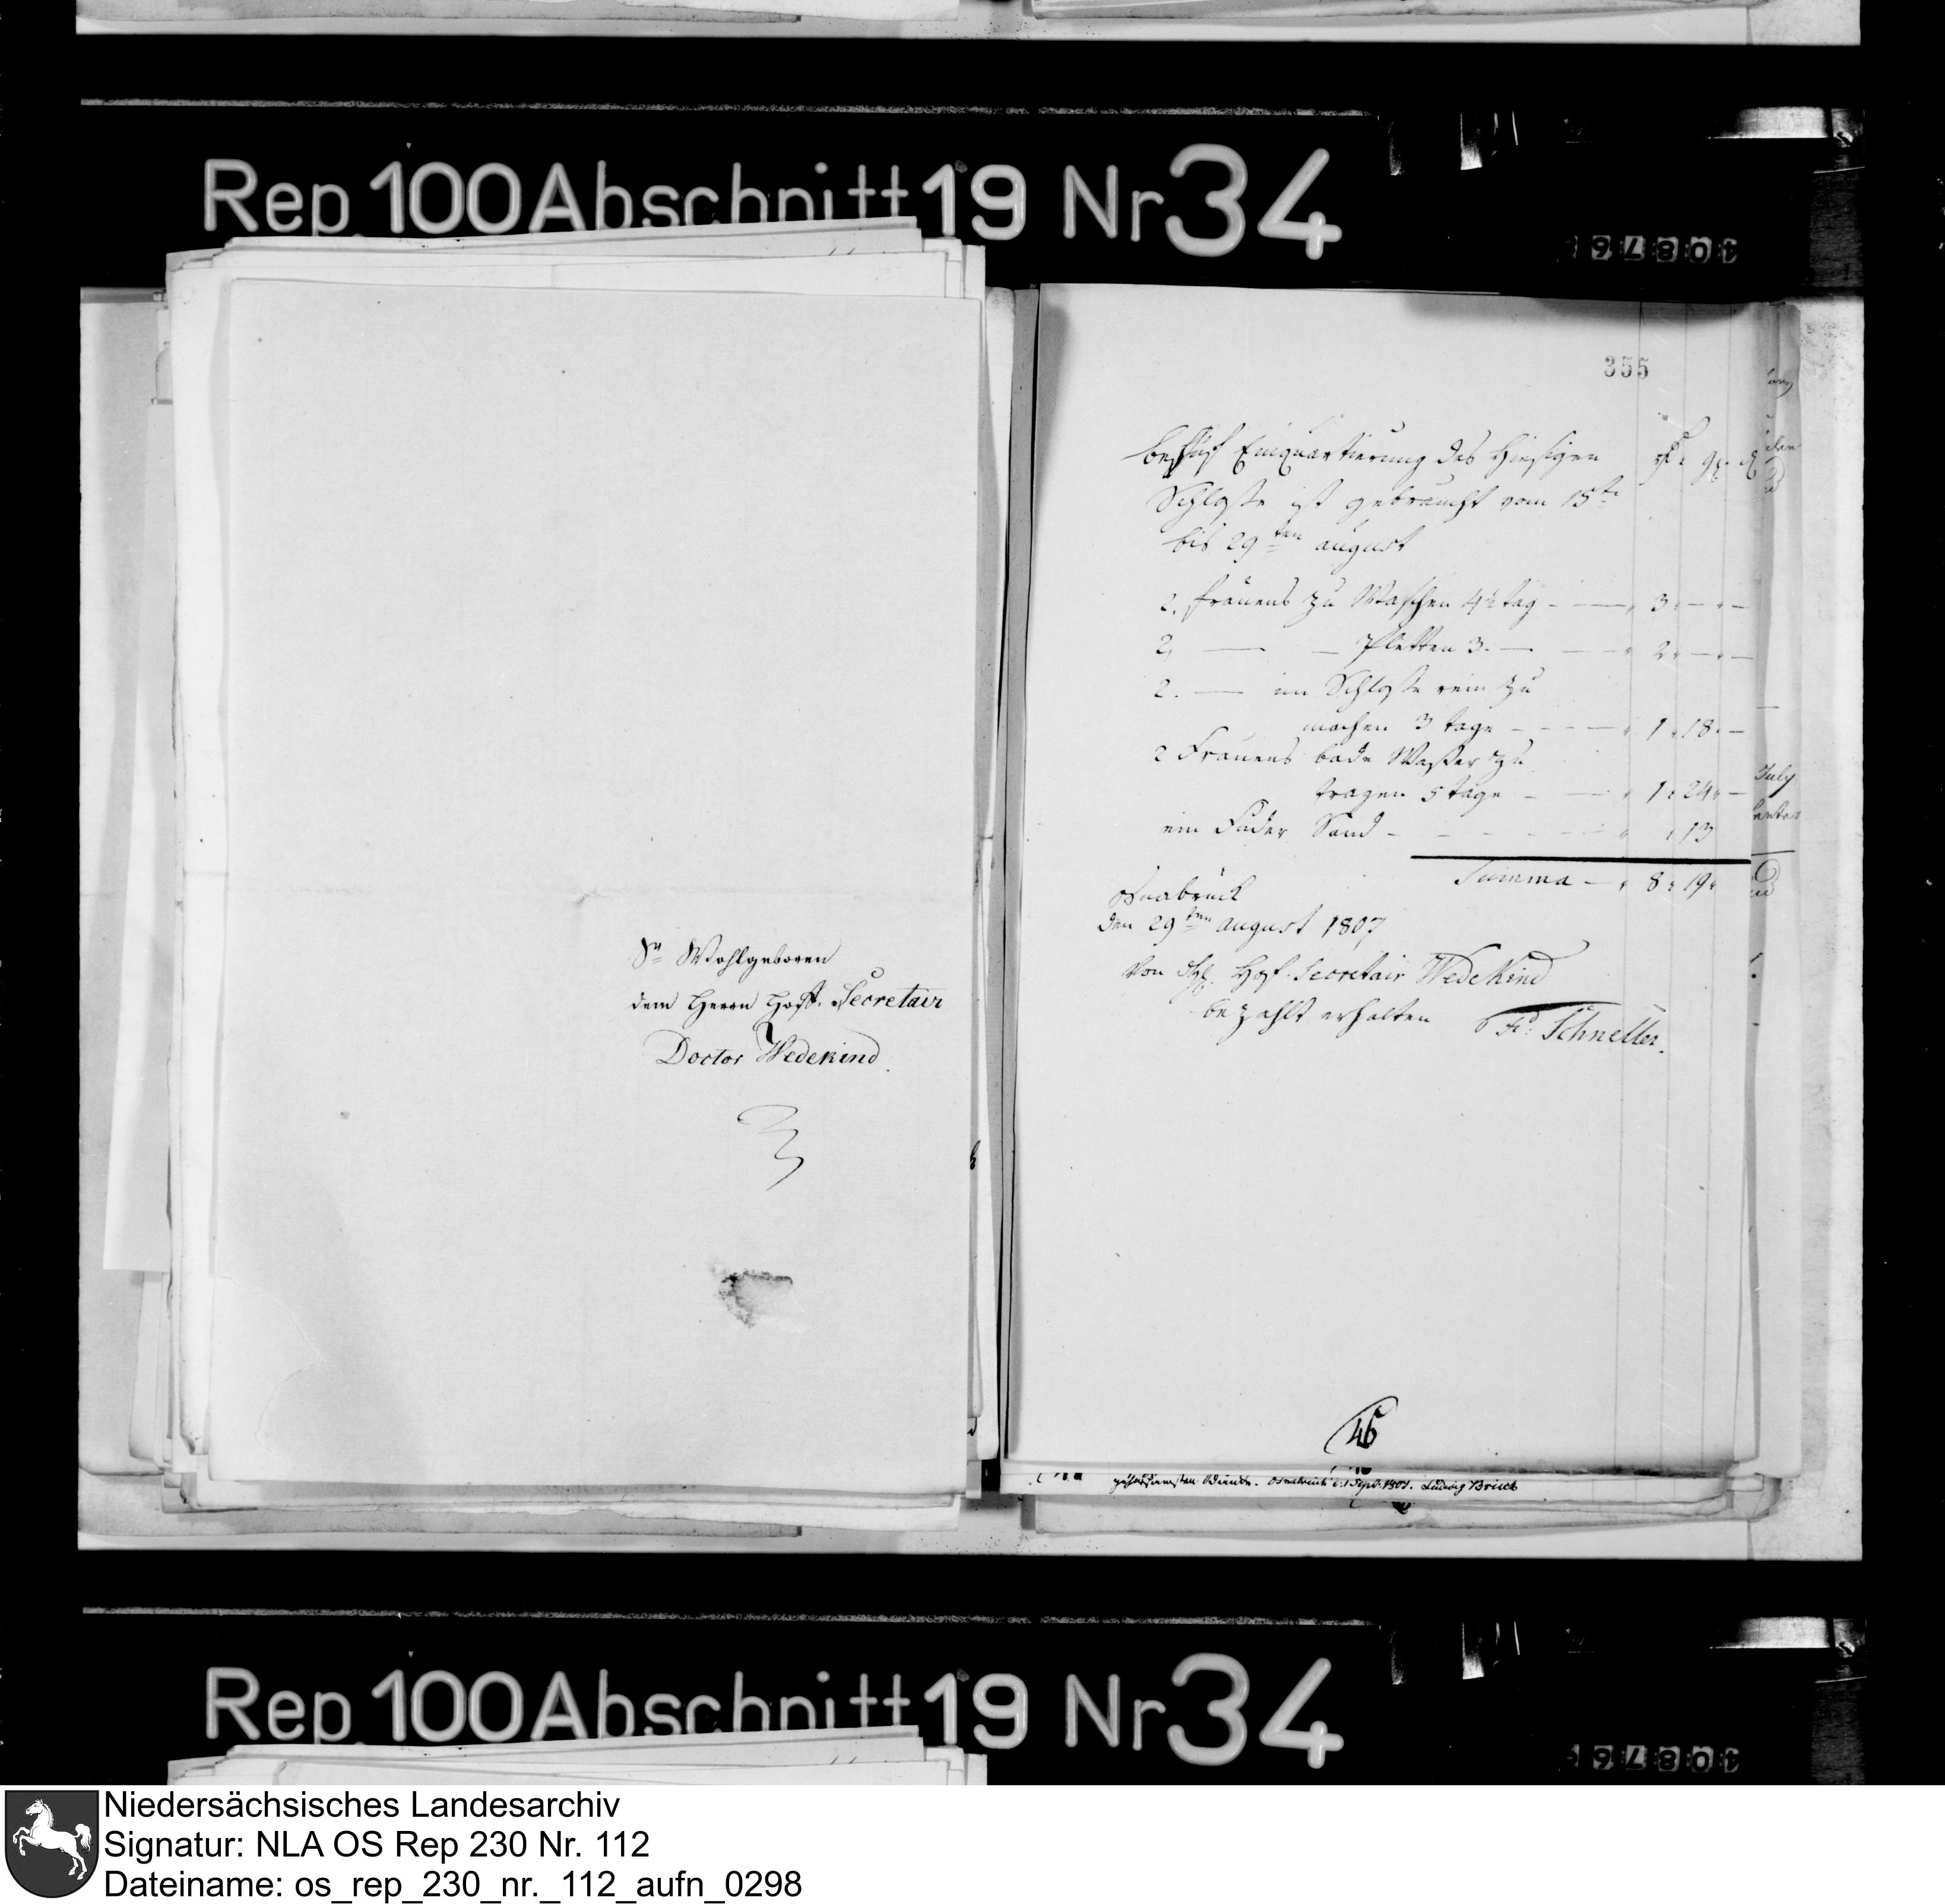 Rep. 100 Abschnitt 19 Nr 34
Sr Wohlgeboren
dem Herrn Hoff. Secretair
Doctor Wedekind.
355
behuf Einquartierung des hiesigen
Schloße ist gebraucht vom 15te
bis 29ten august
2. frauens zu Waschen 4½ tag - 3 " - " -
2, — — Pletten 3. — 2 " - " -
2. — im Schloße rein zu
machen 3 tage - 1 " 18 " -
2 Frauens bade Waßer zu
tragen 5 tage - 1 " 24 " -
ein Fuder Sand - " 13
Summa - 8 " 19 "
Osnabrück
den 29ten august 1807
Von Hoff. Secretair Wedekind
bezahlt erhalten Schneller.
46
Osnabrück d. 1 Sept. 1807. Ludwig Brück
July
Rep. 100 Abschnitt 19 Nr 34
Niedersächsisches Landesarchiv
Signatur: NLA OS Rep 230 Nr. 112
Dateiname: os_rep_230_nr._112_aufn_0298